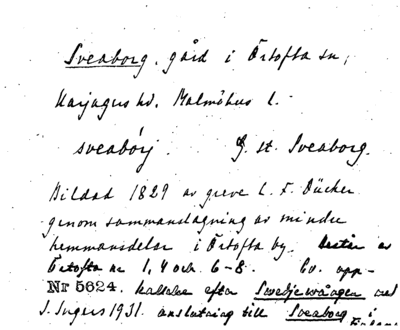 Sveaborg, gård i Örtofta sn,
Harjagers hd. Malmöhus l.
sveabórj. G. st. Sveaborg.
Bildad 1829 av greve C. F. Dücker
genom sammanslagning av mindre
hemmansdelar i Örtofta by. Består av
Örtofta nr 1, 4 och 6-8. Ev. upp-
Nr 5624. kallelse efter Swedjewången med
J. Ingers 1931. anslutning till Sveaborg i
Finland